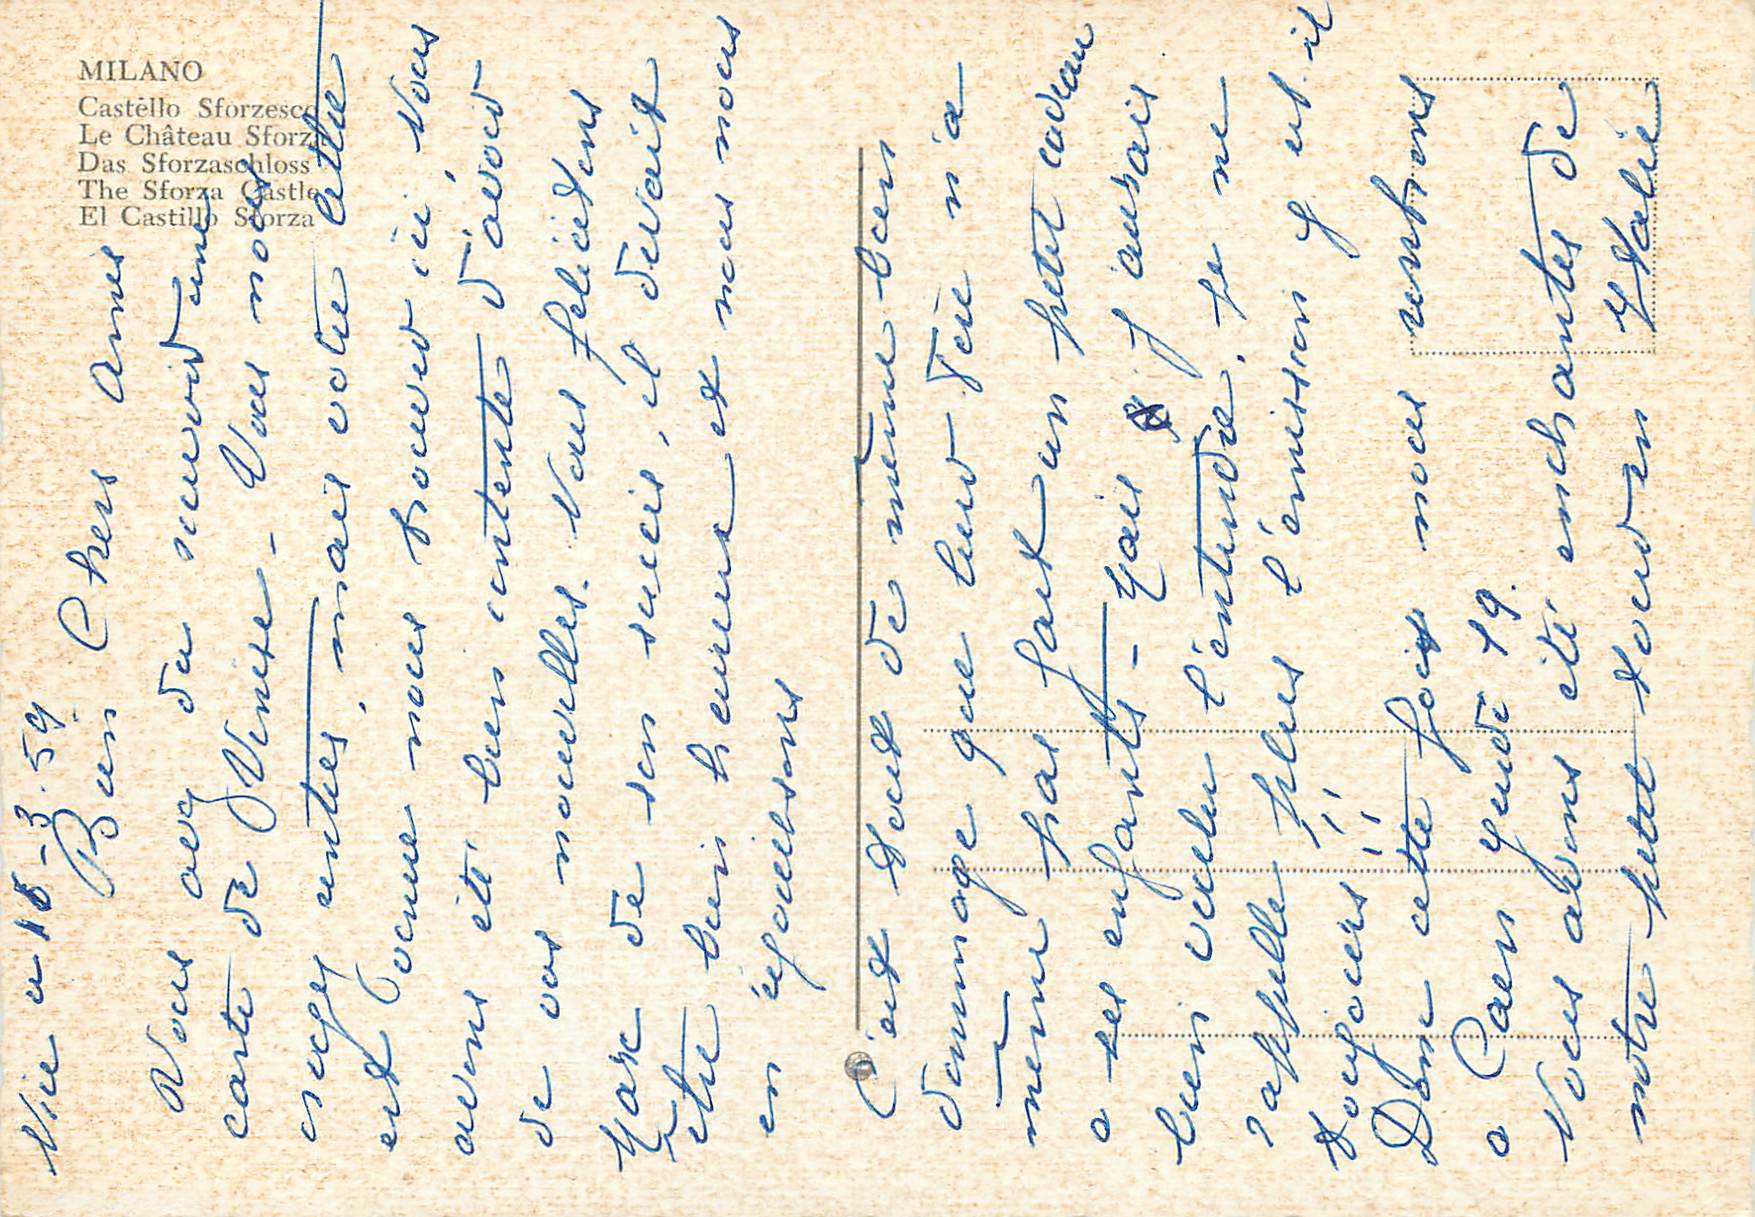 MILANO
Castello Sforzesco
Le Château Sforza
Das Sforzaschloss
The Sforza Castle
El Castillo Sforza
Nice a 18-3.59
Bien Chers Amis
Vous avez du recevoir une
carte de Venise - Vous nous
croyez rentrés, mais votre lettre
est venue nous trouver ici, Nous
avons été bien contents d'avoir
de vos nouvelles. Nous felicitons
Marc de son succès, il devait
etre bien heureux et nous nous
en réjouissons
C'est tout de même bien
dommage que leur Père n'a
même pas fait un petit cadeau
a ses enfants - Mais j'aurais
bien voulu l'entendre, je ne
rappelle plus l'émission y est-il
toujours !!
Donc cette fois nous rentrons
a Caen jeudi 19.
Nous avons été enchantés de
notre petit tour en Italie